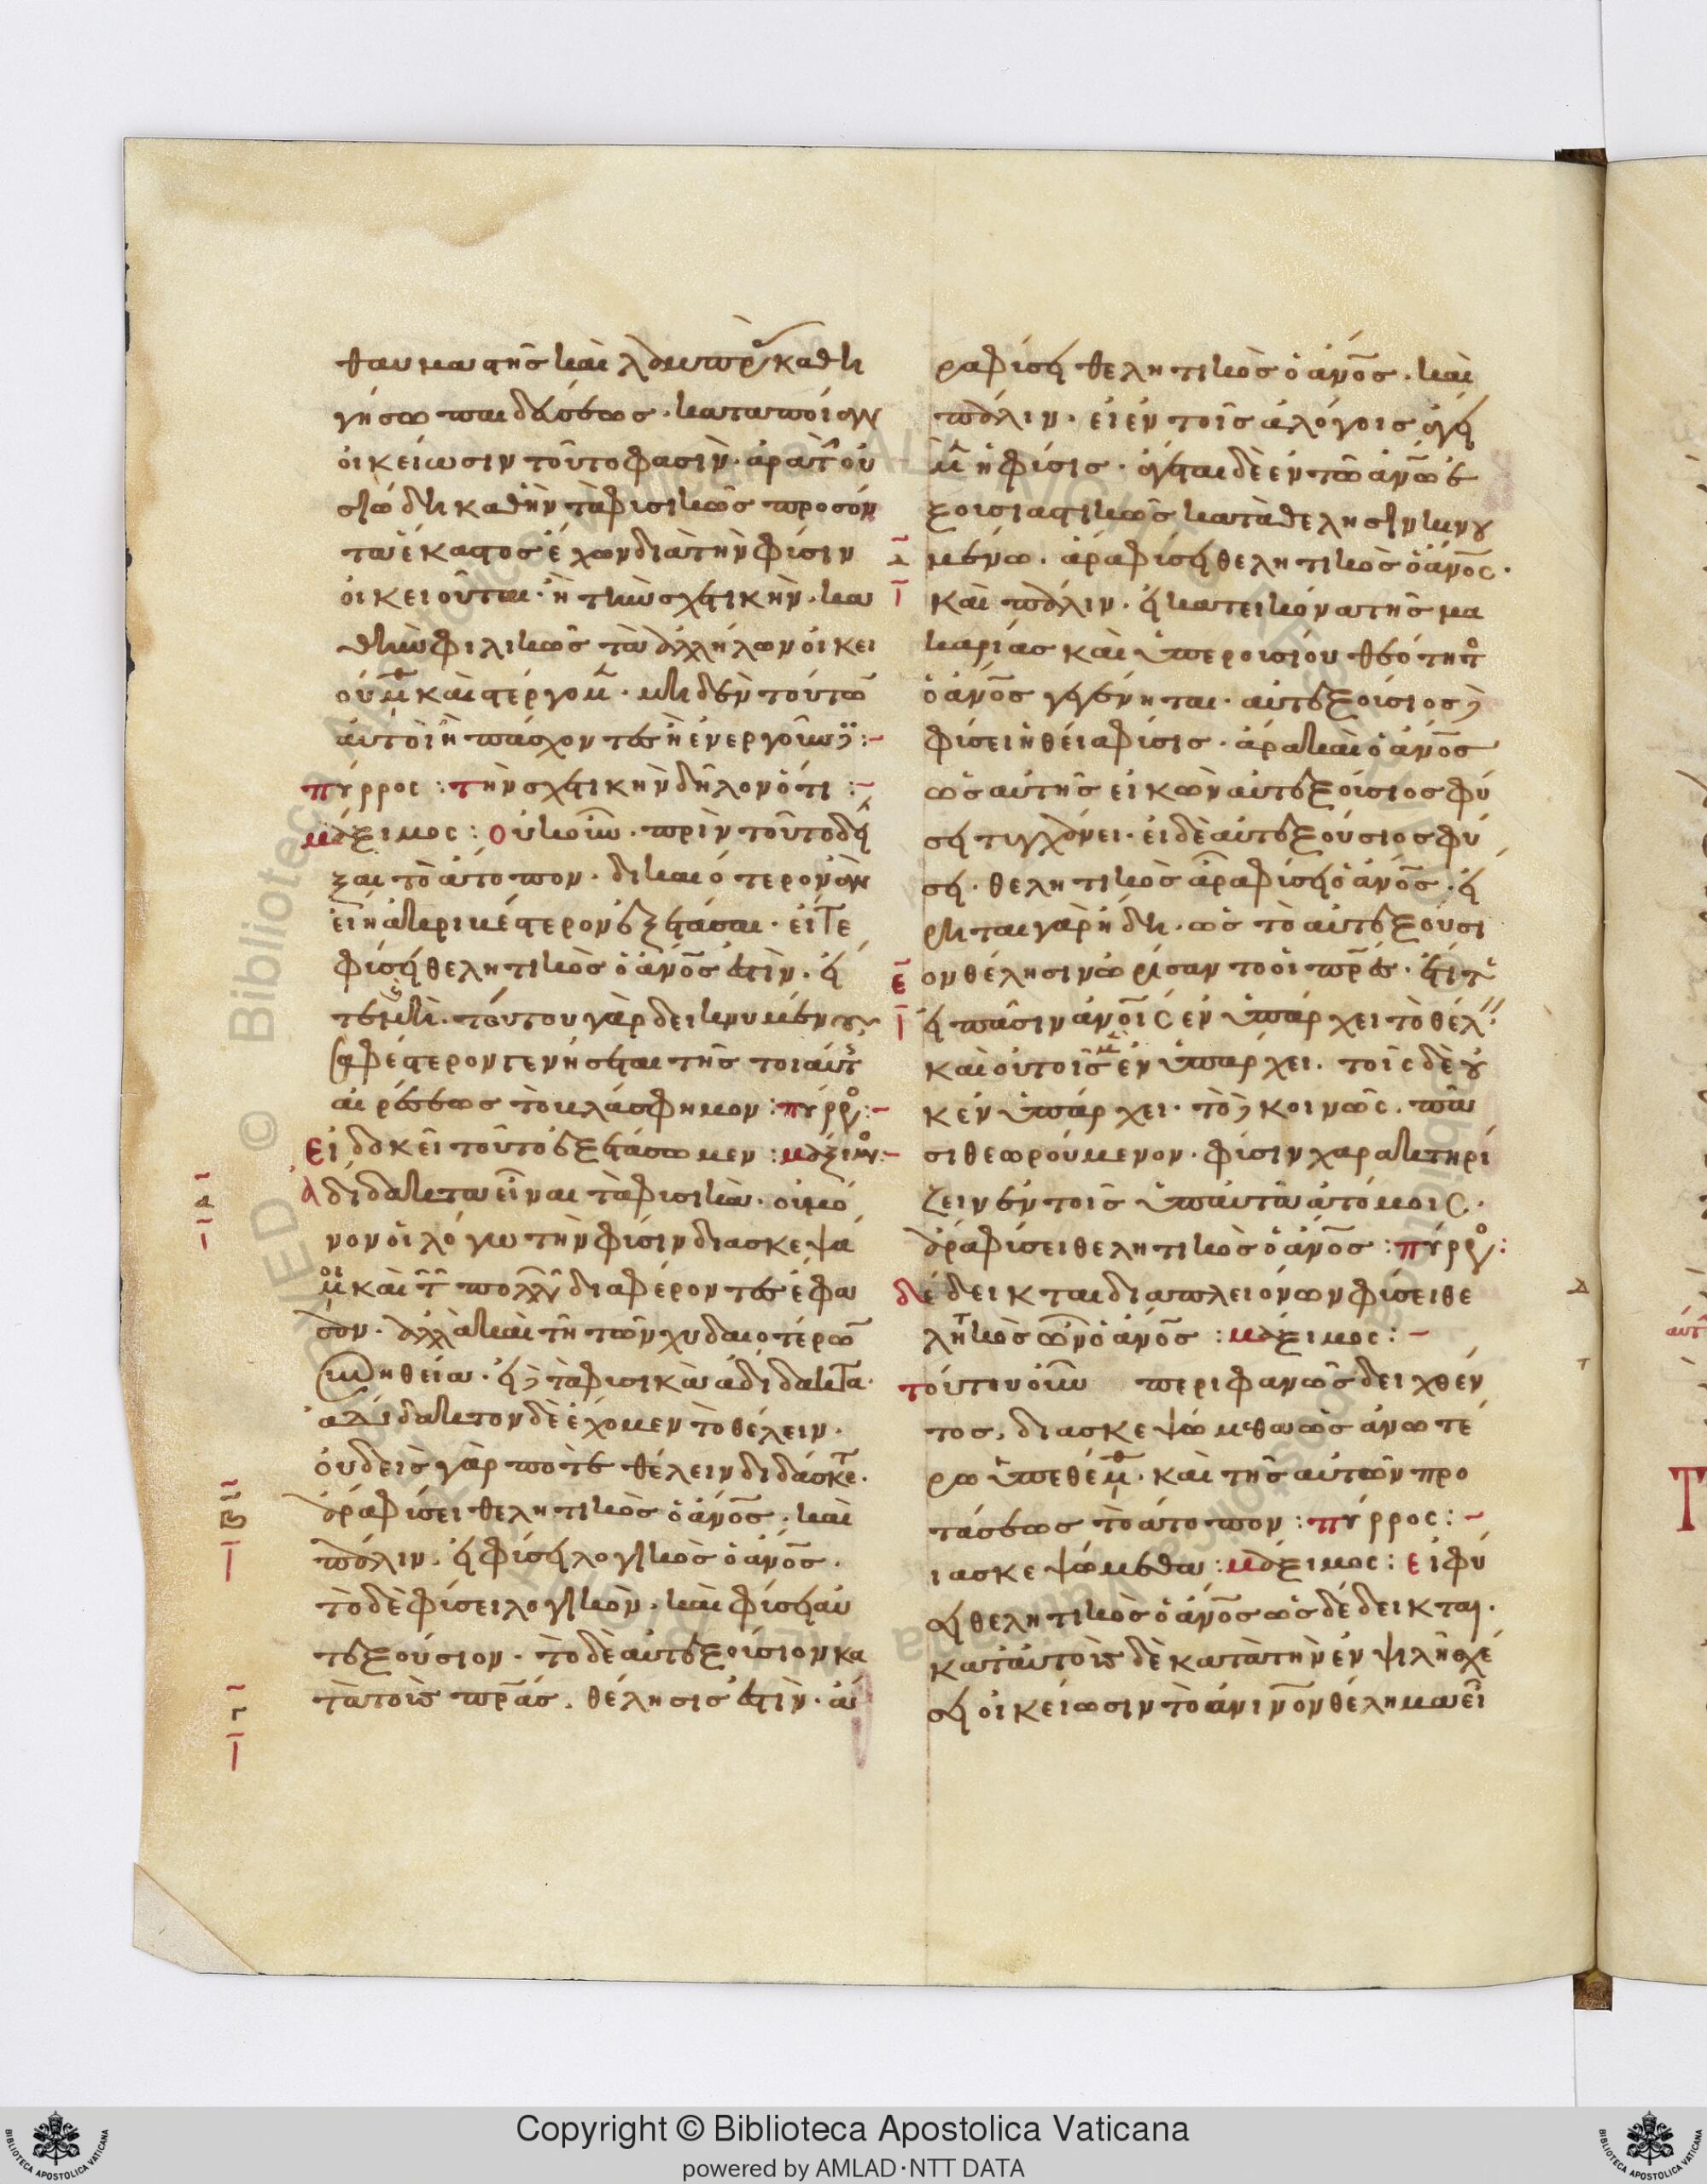 θαυμαστῆς καὶ λαμπρᾶς καθη
γήσω παιδεύσεως. κατὰ ποίαν
οἰκείωσιν τοῦτο φασὶν. ἆρα τὴν οὐ
σιώδη καθ' ἣν τὰ φυσικῶς προσόν
τα ἕκαστος ἔχων διὰ τὴν φύσιν
οἰκειοῦται. ἢ τὴν σχετικὴν. κα
θ' ἣν φιλικῶς τὰ ἀλλήλων οἰκει
ούμεθα καὶ στέργομεν. μηδὲν τούτων
αὐτοὶ ἢ πάσχοντες ἢ ἐνεργοῦντες :-
πύρρος : τὴν σχετικὴν δηλονότι :-
μάξιμος : οὐκοῦν. πρὶν τοῦτο δεῖ
ξαι τὸ ἄτοπον. δικαιότερον ἂν
εἴη ἀκριβέστερον ἐξετάσαι. εἴτε
φύσει θελητικὸς ὁ ἄνος ἐστὶν. εἴ
τε καὶ μὴ. τούτου γὰρ δεικνυμένου
σαφέστερον γενήσεται τῆς τοιαύτης
αἱρέσεως τὸ βλάσφημον : πύρρος :-
Εἰ δοκεῖ τοῦτο ἐξετάσωμεν : μάξιμος :-
Α ἀδίδακτα εἶναι τὰ φυσικὰ. οὐ μό
νον οἱ λόγω τὴν φύσιν διασκεψά
μενοι καὶ τῶν πολλῶν διαφέροντες ἔφα
σαν. ἀλλὰ καὶ τῆ τῶν χυδαιοτέρων
συνηθεία. εἰ δὲ τὰ φυσικὰ ἀδίδακτα.
ἀδίδακτον δὲ ἔχομεν τὸ θέλειν.
οὐδεὶς γὰρ ποτὲ θέλειν διδάσκεται.
Β ἄρα φύσει θελητικὸς ὁ ἄνος. καὶ
πάλιν. εἰ φύσει λογικὸς ὁ ἄνος.
τὸ δὲ φύσει λογικὸν. καὶ φύσει αὐ
τεξούσιον. τὸ δὲ αὐτεξούσιον κα
Γ τὰ τοὺς πρας. θέλησις ἐστὶν. ἄ
ρα φύσει θελητικὸς ὁ ἄνος. καὶ
πάλιν. εἰ ἐν τοῖς ἀλόγοις ἄγει
μὲν ἡ φύσις. ἄγεται δὲ ἐν τῶ ἀνω ἐ
ξουσιαστικῶς κατὰ θέλησιν κινου
Δ μένω. ἄρα φύσει θελητικὸς ὁ ἄνος.
καὶ πάλιν. εἰ κατ' εἰκόνα τῆς μα
καρίας καὶ ὑπερουσίου θεότητος
ὁ ἄνος γεγένηται. αὐτεξούσιος δὲ
φύσει ἡ θεία φύσις. ἄρα καὶ ὁ ἄνος
ὡς αὐτῆς εἰκὼν αὐτεξούσιος φύ
σει τυγχάνει. εἰ δὲ αὐτεξούσιος φύ
σει. θελητικὸς ἄρα φύσει ὁ ἄνος. εἴ
ρηται γὰρ ἤδη. ὡς τὸ αὐτεξούσι
Ε ον θέλησιν ὡρίσαντο οἱ πρες. ἔτι τε
εἰ πᾶσιν ἀνοις ἐνυπάρχει τὸ θέλειν.
καὶ οὐ τοῖς μὲν ἐνυπάρχει. τοῖς δὲ οὐ
κ ἐνυπάρχει. τὸ δὲ κοινῶς. πᾶ
σι θεωρούμενον. φύσιν χαρακτηρί
ζειν ἐν τοῖς ὑπ' αὐτὰ ἀτόμοις.
ἄρα φύσει θελητικὸς ὁ ἄνος : πύρρος :
δέδεικται διὰ πλειόνων φύσει θε
λητικὸς ὢν ὁ ἄνος : μάξιμος :-
τούτου οὖν περιφανῶς δειχθέν
τος, διασκεψώμεθα ὡς ἀνωτέ
ρω ὑπεθέμεθα. καὶ τῆς αὐτῶν προ
τάσεως τὸ ἄτοπον : πύρρος :-
ιασκεψώμεθα : μάξιμος : εἰ φύ
σει θελητικὸς ὁ ἄνος ὡς δέδεικται.
κατ' αὐτοὺς δὲ κατὰ τὴν ἐν ψιλῆ σχέ
σει οἰκείωσιν τὸ ἀνινον θέλημα εἶ
Copyright © Biblioteca Apostolica Vaticana
powered by AMLAD·NTT DATA